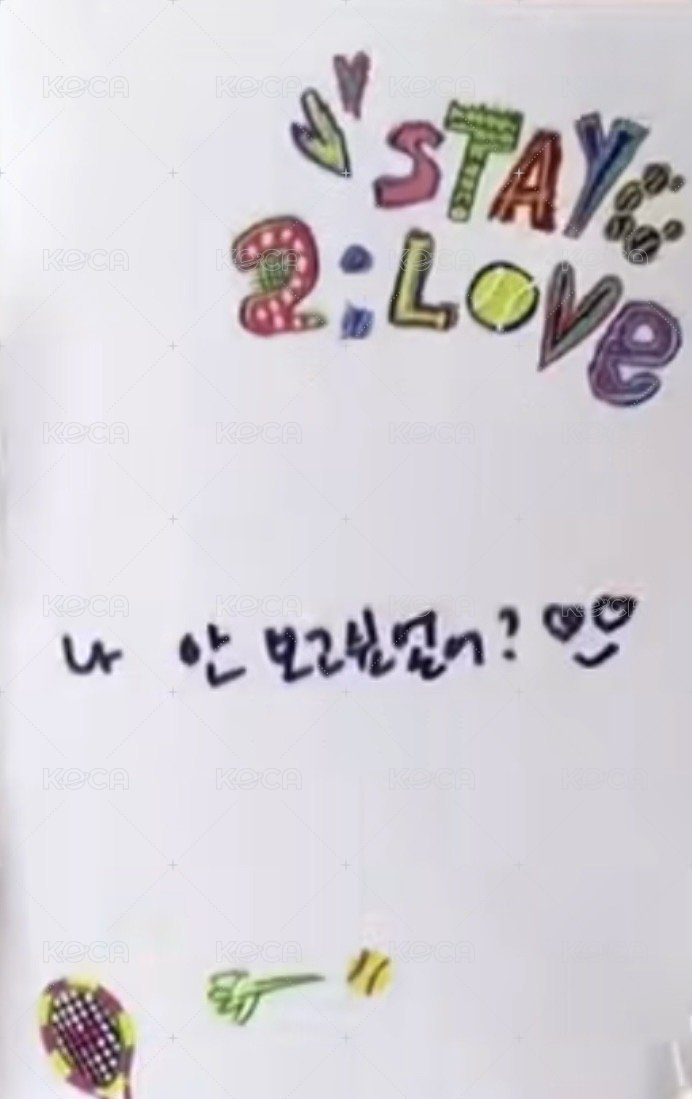 STAY
2:LOVE
나 안 보고싶었어?